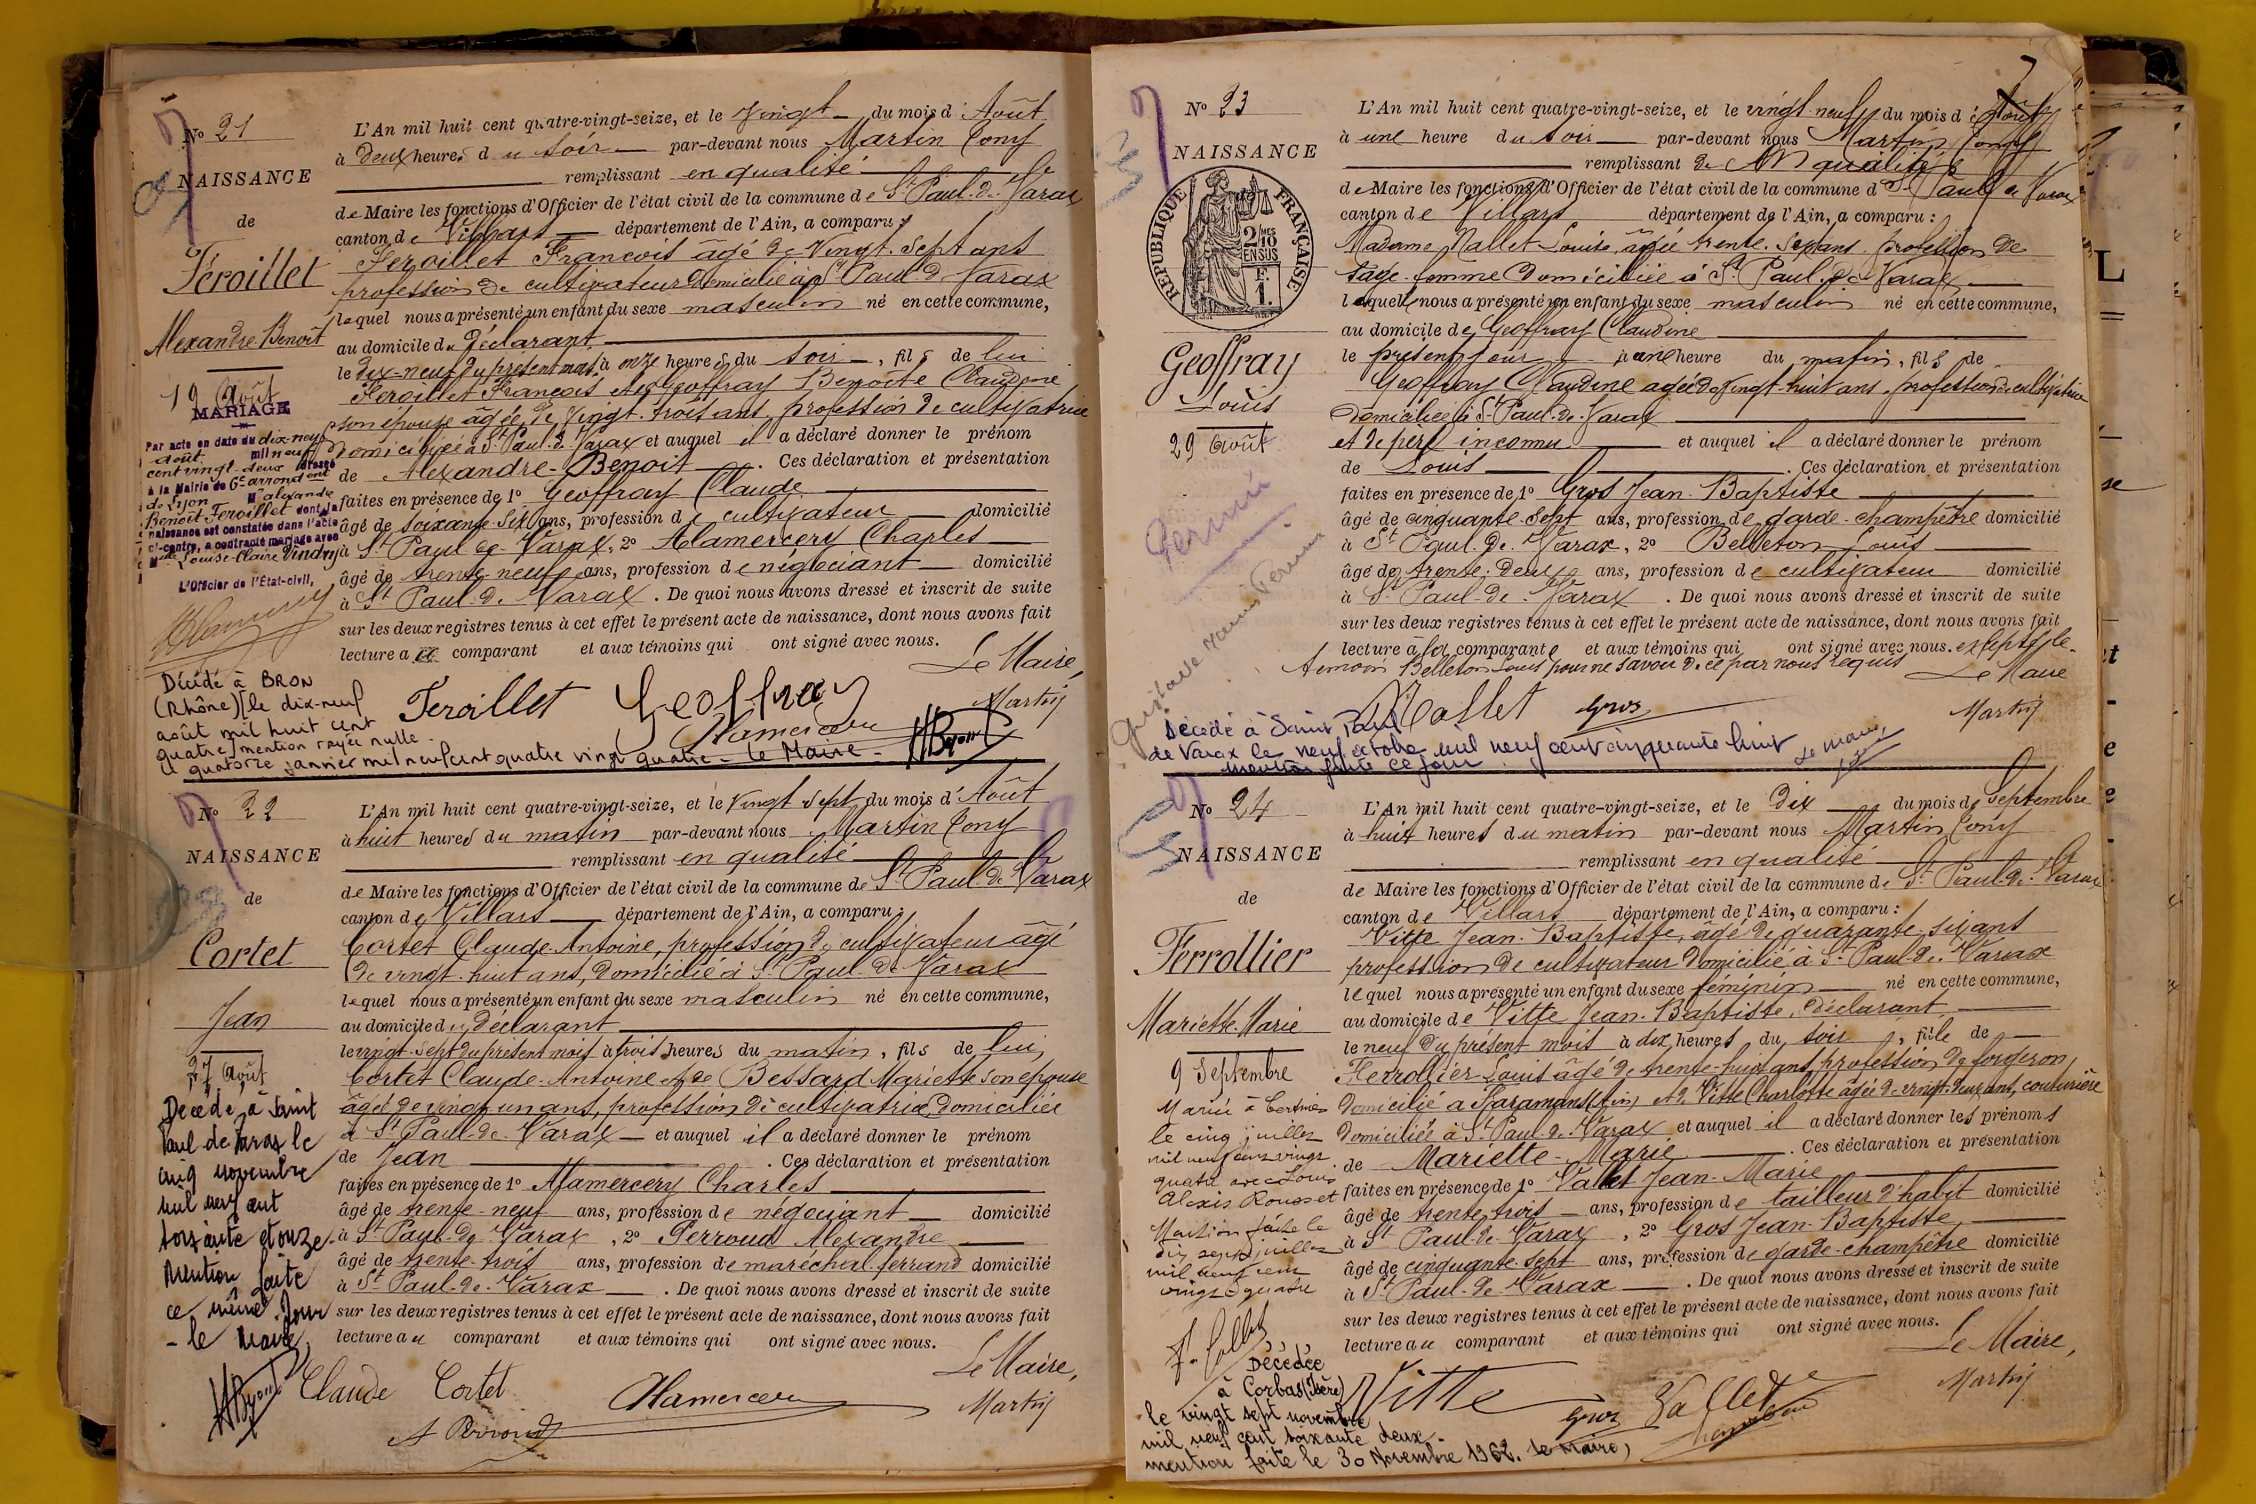 No 21
NAISSANCE
de
Féroillet
Alexandre Benoît
19 Août
MARIAGE
Par acte en date du dix-neuf
Août mil neuf
cent vingt-deux dressé
à la Mairie de 6e arrondt
de Lyon Mr alexandre
Benoît Feroillet dont la
naissance est constatée dans l'acte
ci-contre, a contracté mariage avec
Mlle Louise-Claire Vindry
L'Officier de l'État-civil,
L'An mil huit cent quatre-vingt-seize, et le Vingt du mois d'Août
à deux heures du soir par-devant nous Martin Tony
remplissant en qualité
de Maire les fonctions d'Officier de l'état civil de la commune de St Paul-de-Varax
canton de Villars département de l'Ain, a comparu
Feroillet François âgé de Vingt-sept ans
profession de cultivateur domicilié à St Paul-de-Varax
lequel nous a présenté un enfant du sexe masculin né en cette commune,
au domicile du déclarant
le dix-neuf du présent mois à onze heures du soir, fils de lui
Feroillet François et de Geoffray Benoîte Claudine
son épouse âgée de vingt-trois ans, profession de cultivatrice
domiciliée à St Paul-de-Varax et auquel il a déclaré donner le prénom
de Alexandre-Benoit. Ces déclaration et présentation
faites en présence de 1o Geoffray Claude
âgé de soixante-six ans, profession de cultivateur domicilié
à St Paul-de-Varax, 2o Alamercery Charles
âgé de trente-neuf ans, profession de négociant domicilié
à St Paul-de-Varax. De quoi nous avons dressé et inscrit de suite
sur les deux registres tenus à cet effet le présent acte de naissance, dont nous avons fait
lecture au comparant et aux témoins qui ont signé avec nous.
Le Maire,
Feroillet Geoffray Martin
Alamercery
Décédé à BRON
(Rhône) le dix-neuf
août mil huit cent
quatre mention rayée nulle.
le quatorze janvier mil neuf cent quatre vingt quatre - le Maire -
No 22
NAISSANCE
de
Cortet
Jean
27 Août
Décédé à Saint
Paul de Varax le
cinq novembre
mil neuf cent
soixante et onze.
Mention faite
ce même Jour
- le Maire,
L'An mil huit cent quatre-vingt-seize, et le Vingt sept du mois d'Août
à huit heures du matin par-devant nous Martin Tony
remplissant en qualité
de Maire les fonctions d'Officier de l'état civil de la commune de St Paul-de-Varax
canton de Villars département de l'Ain, a comparu :
Cortet Claude-Antoine, profession de cultivateur âgé
de vingt-huit ans, domicilié à St Paul-de-Varax
lequel nous a présenté un enfant du sexe masculin né en cette commune,
au domicile du déclarant
le vingt-sept du présent mois à trois heures du matin, fils de lui
Cortet Claude-Antoine et de Bessard Mariette son épouse
âgée de vingt un ans, profession de cultivatrice, domiciliée
à St Paul-de-Varax et auquel il a déclaré donner le prénom
de Jean. Ces déclaration et présentation
faites en présence de 1o Alamercery Charles
âgé de trente-neuf ans, profession de négociant domicilié
à St Paul-de-Varax, 2o Perroud Alexandre
âgé de trente-trois ans, profession de maréchal-ferrand domicilié
à St Paul-de-Varax. De quoi nous avons dressé et inscrit de suite
sur les deux registres tenus à cet effet le présent acte de naissance, dont nous avons fait
lecture au comparant et aux témoins qui ont signé avec nous.
Le Maire,
Claude Cortet Alamercery Martin
A Perroud
No 23
NAISSANCE
REPUBLIQUE FRANÇAISE
2/10 EN SUS
F. 1.
Geoffray
Louis
29 Août
Permis
L'An mil huit cent quatre-vingt-seize, et le vingt-neuf du mois d'Août
à une heure du soir par-devant nous Martin Tony
remplissant en qualité
de Maire les fonctions d'Officier de l'état civil de la commune de St Paul-de-Varax
canton de Villars département de l'Ain, a comparu :
Madame Mallet Louise âgée trente-sept ans profession de
sage-femme domiciliée à St Paul-de-Varax
laquelle nous a présenté un enfant du sexe masculin né en cette commune,
au domicile de Geoffray Claudine
le présent jour à une heure du matin, fils de
Geoffray Claudine agée de vingt-huit ans, profession de cultivatrice
domiciliée à St Paul-de-Varax
et de père inconnu et auquel il a déclaré donner le prénom
de Louis. Ces déclaration et présentation
faites en présence de 1o Gros Jean-Baptiste
âgé de cinquante-sept ans, profession de garde-champêtre domicilié
à St Paul-de-Varax, 2o Belleton Louis
âgé de trente-deux ans, profession de cultivateur domicilié
à St Paul-de-Varax. De quoi nous avons dressé et inscrit de suite
sur les deux registres tenus à cet effet le présent acte de naissance, dont nous avons fait
lecture à la comparante et aux témoins qui ont signé avec nous. excepté le
témoin Belleton Louis pour ne savoir de ce par nous requis
Le Maire
Mallet Gros Martin
Décédé à Saint Paul
de Varax le neuf octobre mil neuf cent cinquante huit
mention faite ce jour. Le Maire,
No 24
NAISSANCE
de
Ferrollier
Mariette-Marie
9 Septembre
Mariée à Certines
le cinq juillet
mil neuf cent vingt
quatre avec Louis
Alexis Rousset
Mention faite le
dix sept juillet
mil neuf cent
vingt-quatre
Décédée
à Corbas (Isère)
le vingt sept novembre
mil neuf cent soixante deux.
mention faite le 30 Novembre 1962. le Maire,
L'An mil huit cent quatre-vingt-seize, et le dix du mois de Septembre
à huit heures du matin par-devant nous Martin Tony
remplissant en qualité
de Maire les fonctions d'Officier de l'état civil de la commune de St Paul-de-Varax
canton de Villars département de l'Ain, a comparu :
Vitte Jean-Baptiste, âgé de quarante-six ans
profession de cultivateur domicilié à St Paul-de-Varax
lequel nous a présenté un enfant du sexe féminin né en cette commune,
au domicile de Vitte Jean-Baptiste, déclarant,
le neuf du présent mois à dix heures du soir, fille de
Ferrollier Louis âgé de trente-huit ans profession de forgeron,
domicilié à Varamans (Ain) et de Vitte Charlotte âgée de vingt-deux ans, couturière
domiciliée à St Paul-de-Varax et auquel il a déclaré donner les prénoms
de Mariette-Marie. Ces déclaration et présentation
faites en présence de 1o Vallet Jean-Marie
âgé de trente-trois ans, profession de tailleur d'habit domicilié
à St Paul-de-Varax, 2o Gros Jean-Baptiste
âgé de cinquante-sept ans, profession de garde-champêtre domicilié
à St Paul-de-Varax. De quoi nous avons dressé et inscrit de suite
sur les deux registres tenus à cet effet le présent acte de naissance, dont nous avons fait
lecture au comparant et aux témoins qui ont signé avec nous.
Le Maire,
Vitte Gros Vallet Martin